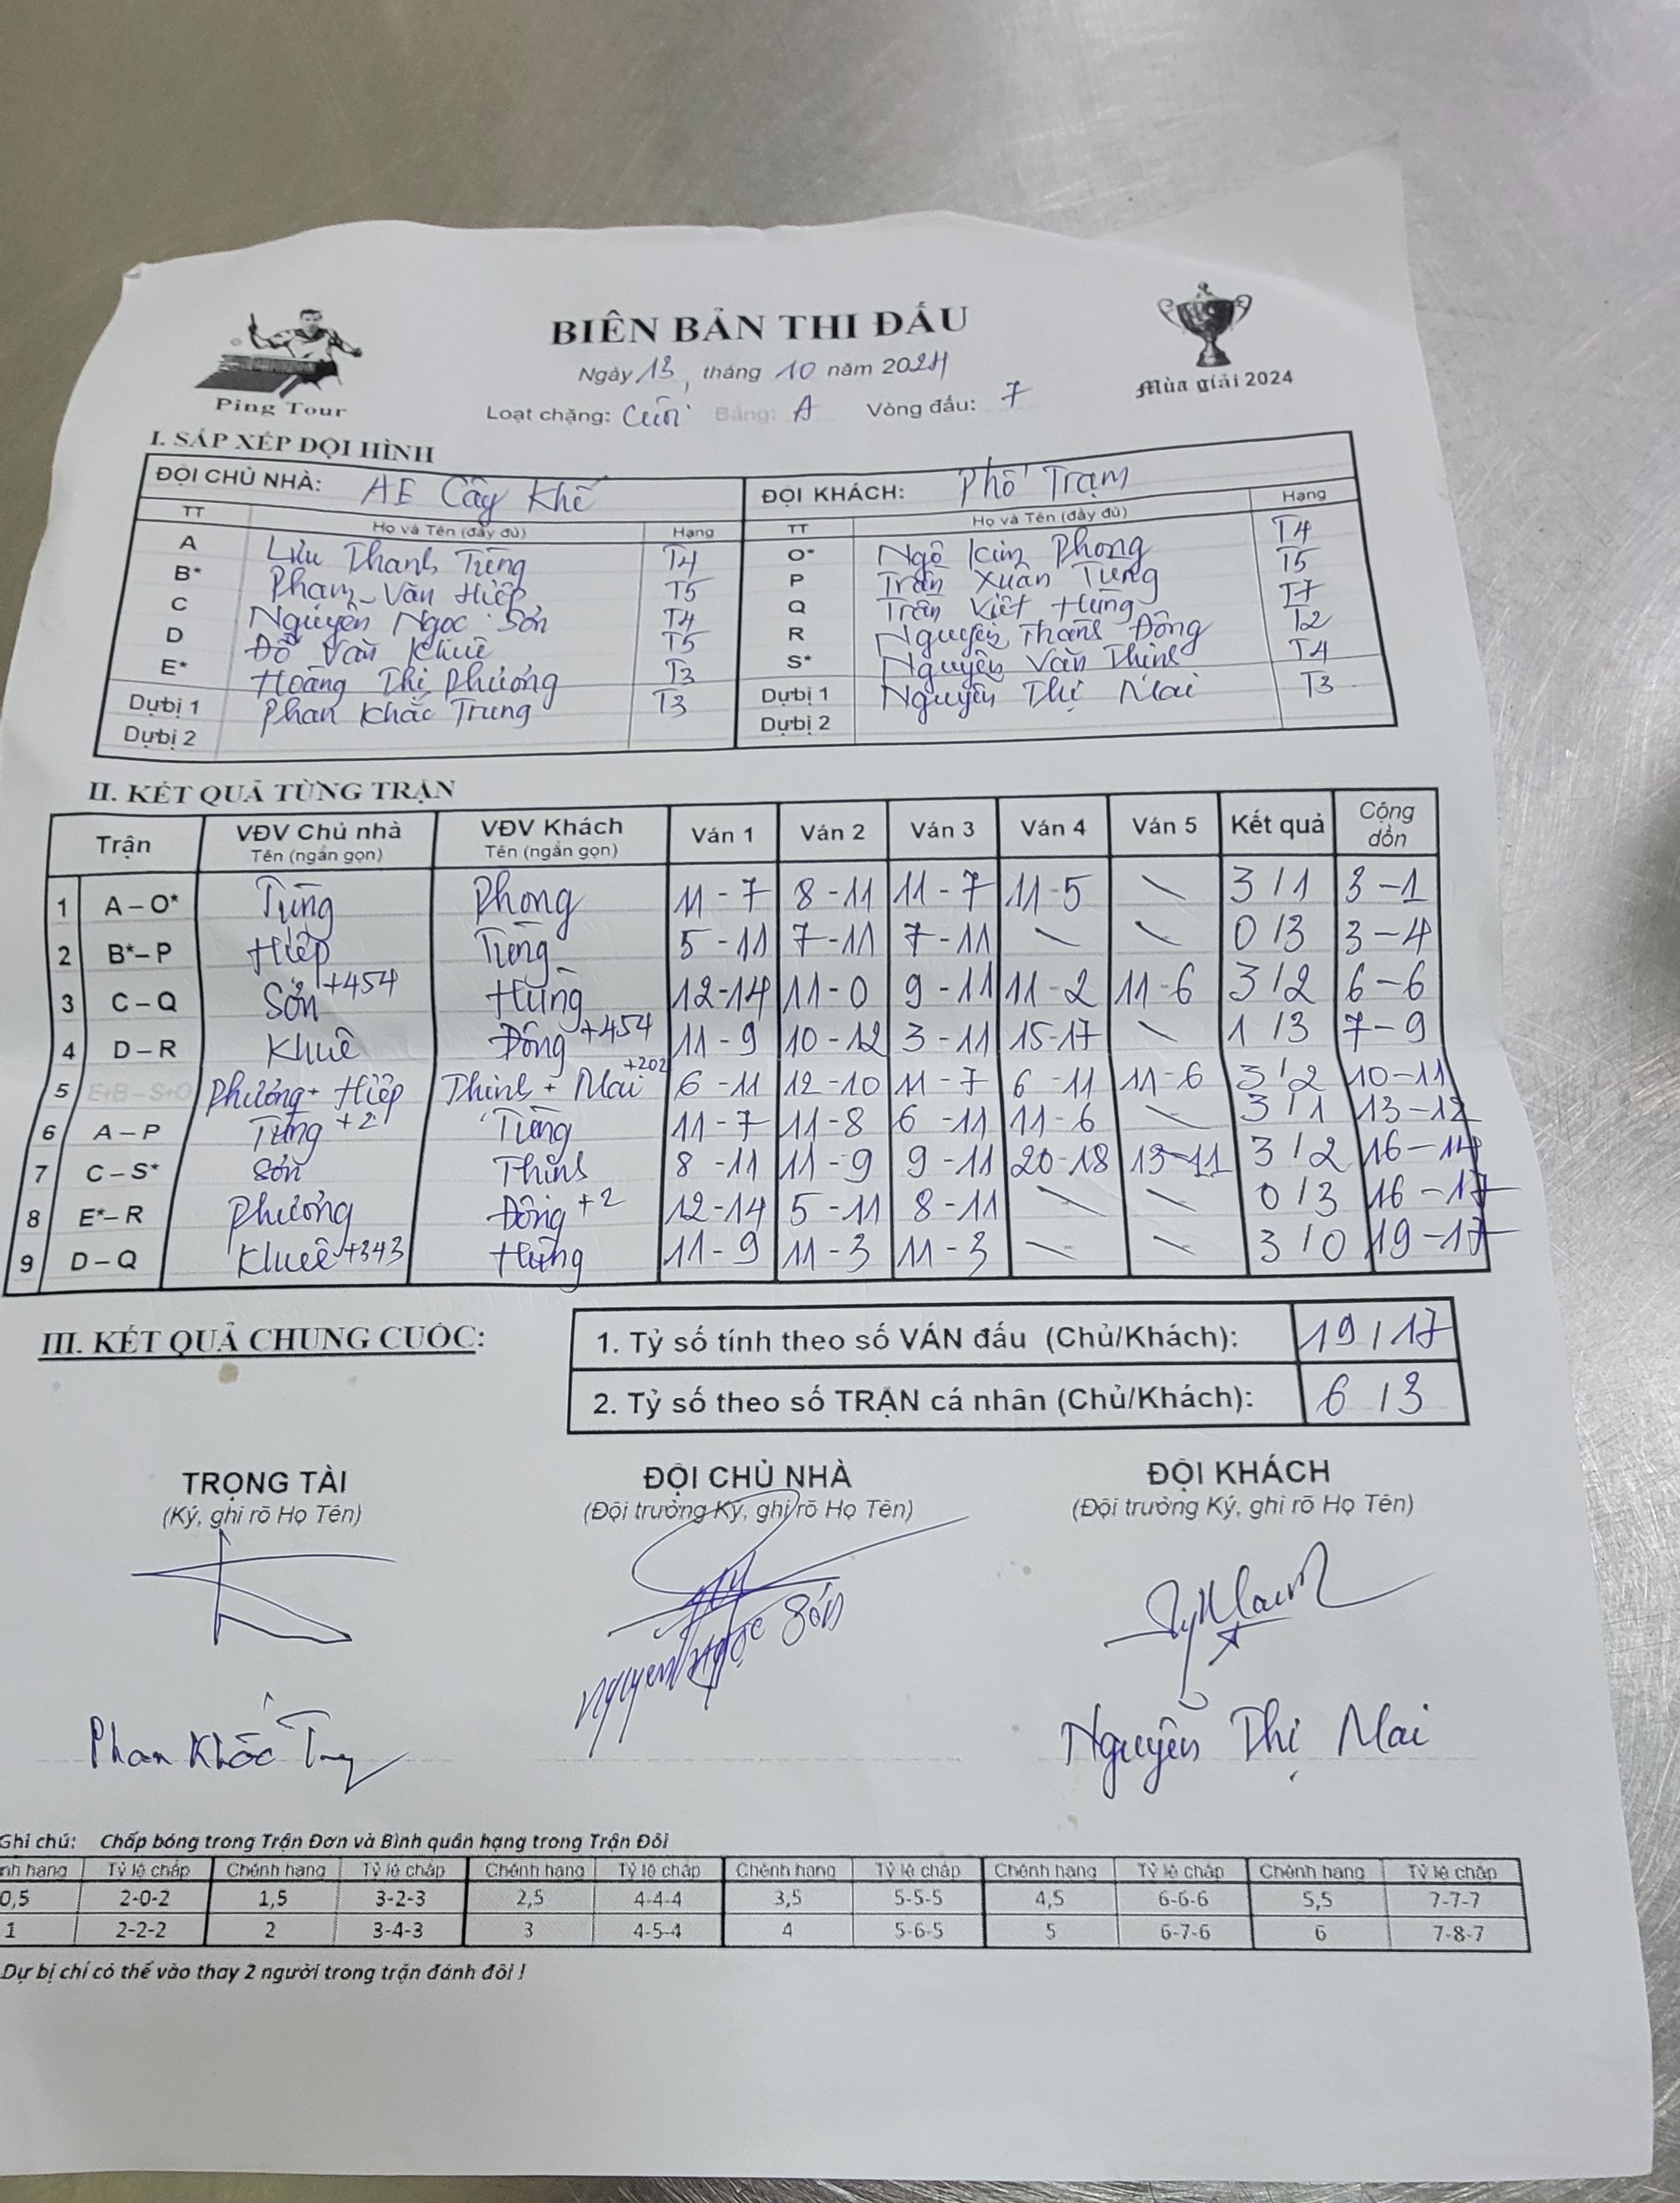 BIÊN BẢN THI ĐẤU
Ngày 13, tháng 10 năm 2024
Ping Tour
Mùa giải 2024
Loạt chặng: Cuối Bảng: A Vòng đấu: 7
I. SẮP XẾP ĐỘI HÌNH
ĐỘI CHỦ NHÀ: AE Cây Khế ĐỘI KHÁCH: Phố Trạm
TT Họ và Tên (đầy đủ) Hạng TT Họ và Tên (đầy đủ) Hạng
A Lưu Thanh Tùng T4 O* Ngô Kim Phong T4
B* Phạm Văn Hiệp T5 P Trần Xuân Tùng T5
C Nguyễn Ngọc Sơn T4 Q Trần Việt Hùng T7
D Đỗ Văn Khuê T5 R Nguyễn Thành Đông T2
E* Hoàng Thị Phương T3 S* Nguyễn Văn Thịnh T4
Dự bị 1 Phan Khắc Trung T3 Dự bị 1 Nguyễn Thị Mai T3
Dự bị 2 Dự bị 2
II. KẾT QUẢ TỪNG TRẬN
Trận VĐV Chủ nhà Tên (ngắn gọn) VĐV Khách Tên (ngắn gọn) Ván 1 Ván 2 Ván 3 Ván 4 Ván 5 Kết quả Cộng dồn
1 A – O* Tùng Phong 11 - 7 8 - 11 11 - 7 11 - 5 \ 3 / 1 3 - 1
2 B* – P Hiệp Tùng 5 - 11 7 - 11 7 - 11 \ \ 0 / 3 3 - 4
3 C – Q Sơn +454 Hùng 12-14 11 - 0 9 - 11 11 - 2 11 - 6 3 / 2 6 - 6
4 D – R Khuê Đông +454 11 - 9 10 - 12 3 - 11 15-17 \ 1 / 3 7 - 9
5 E+B – S+O Phương + Hiệp Thịnh + Mai +202 6 - 11 12 - 10 11 - 7 6 - 11 11 - 6 3 / 2 10 - 11
6 A – P Tùng +2 Tùng 11 - 7 11 - 8 6 - 11 11 - 6 \ 3 / 1 13 - 12
7 C – S* Sơn Thịnh 8 - 11 11 - 9 9 - 11 20 - 18 13 - 11 3 / 2 16 - 14
8 E* – R Phương Đông +2 12 - 14 5 - 11 8 - 11 \ \ 0 / 3 16 - 17
9 D – Q Khuê +343 Hùng 11 - 9 11 - 3 11 - 3 \ \ 3 / 0 19 - 17
III. KẾT QUẢ CHUNG CUỘC:
1. Tỷ số tính theo số VÁN đấu (Chủ/Khách): 19 / 17
2. Tỷ số theo số TRẬN cá nhân (Chủ/Khách): 6 / 3
TRỌNG TÀI ĐỘI CHỦ NHÀ ĐỘI KHÁCH
(Ký, ghi rõ Họ Tên) (Đội trưởng Ký, ghi rõ Họ Tên) (Đội trưởng Ký, ghi rõ Họ Tên)
Nguyễn Ngọc Sơn
Phan Khắc Trung Nguyễn Thị Mai
Ghi chú: Chấp bóng trong Trận Đơn và Bình quân hạng trong Trận Đôi
nh hạng Tỷ lệ chấp Chênh hạng Tỷ lệ chấp Chênh hạng Tỷ lệ chấp Chênh hạng Tỷ lệ chấp Chênh hạng Tỷ lệ chấp Chênh hạng Tỷ lệ chấp
0,5 2-0-2 1,5 3-2-3 2,5 4-4-4 3,5 5-5-5 4,5 6-6-6 5,5 7-7-7
1 2-2-2 2 3-4-3 3 4-5-4 4 5-6-5 5 6-7-6 6 7-8-7
Dự bị chỉ có thể vào thay 2 người trong trận đánh đôi !